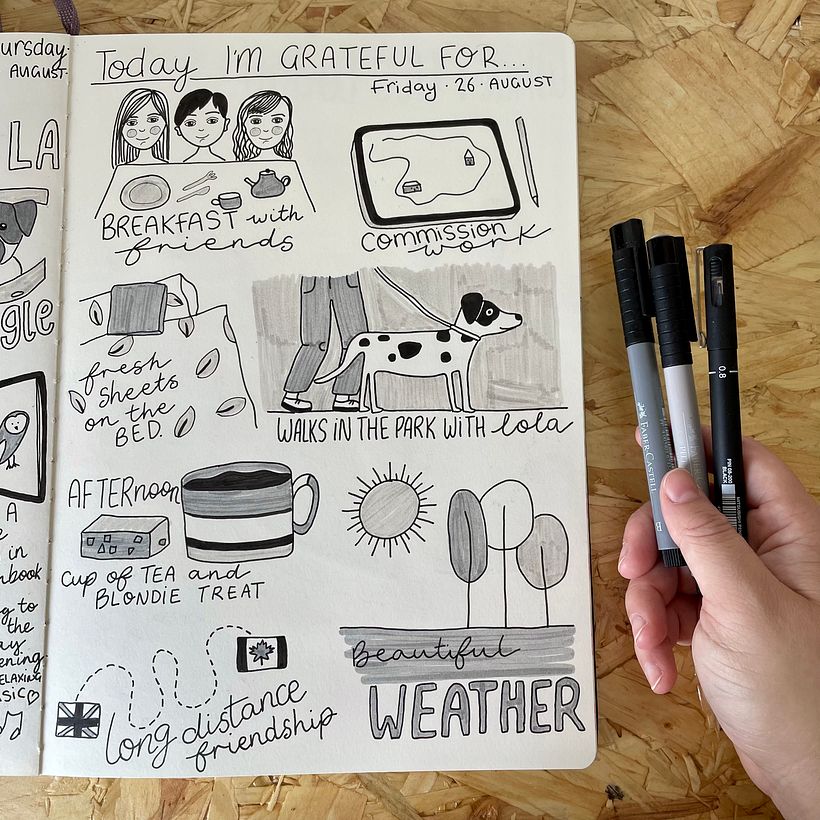 ursday
AUGUST
LA
gle
A
in
book
g to
the
ay
ening
ELAXING
SIC
Today I'M GRATEFUL FOR...
Friday · 26 · AUGUST
BREAKFAST with
friends
commission
work
fresh
sheets
on the
BED.
WALKS IN THE PARK WITH lola
AFTERNOON
cup of TEA and
BLONDIE TREAT
Beautiful
WEATHER
long distance
friendship
FABER-CASTELL
B
0.8
PIN 08-200
BLACK